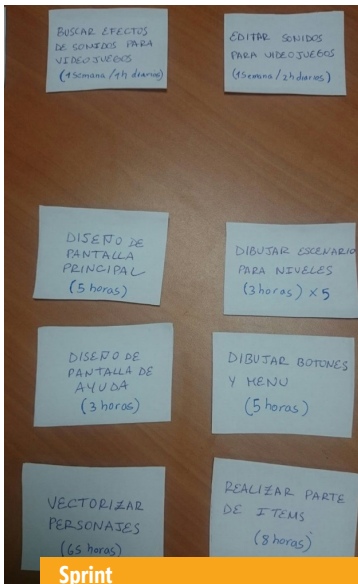 BUSCAR EFECTOS
DE SONIDOS PARA
VIDEOJUEGOS
(1 semana / 1h diarias)
EDITAR SONIDOS
PARA VIDEOJUEGOS
(1 Semana / 2h diarias)
DISEÑO DE
PANTALLA
PRINCIPAL
(5 horas)
DIBUJAR ESCENARIO
PARA NIVELES
(3 horas) x 5
DISEÑO DE
PANTALLA DE
AYUDA
(3 horas)
DIBUJAR BOTONES
Y MENU
(5 horas)
VECTORIZAR
PERSONAJES
(65 horas)
REALIZAR PARTE
DE ITEMS
(8 horas)
Sprint